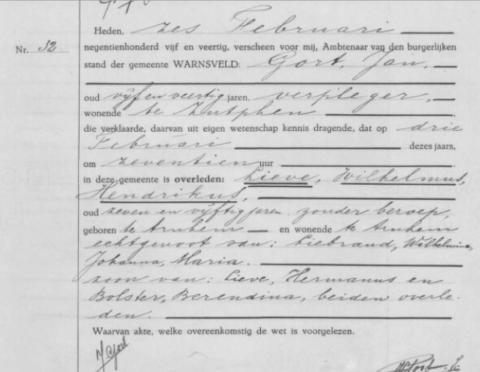 Heden, zes Februari
Nr. 32 negentienhonderd vijf en veertig, verscheen voor mij, Ambtenaar van den burgerlijken
stand der gemeente WARNSVELD: Gort, Jan,
oud vijf en veertig jaren, verpleger,
wonende te Zutphen
die verklaarde, daarvan uit eigen wetenschap kennis dragende, dat op drie
Februari dezes jaars,
om zeventien uur
in deze gemeente is overleden: Lieve, Wilhelmus,
Hendrikus,
oud zeven en vijftig jaren, zonder beroep,
geboren te Arnhem en wonende te Arnhem
echtgenoot van: Liebrand, Wilhelmina,
Johanna, Maria.
zoon van: Lieve, Hermanus en
Bolster, Berendina, beiden overle-
den.
Waarvan akte, welke overeenkomstig de wet is voorgelezen.
J Gort